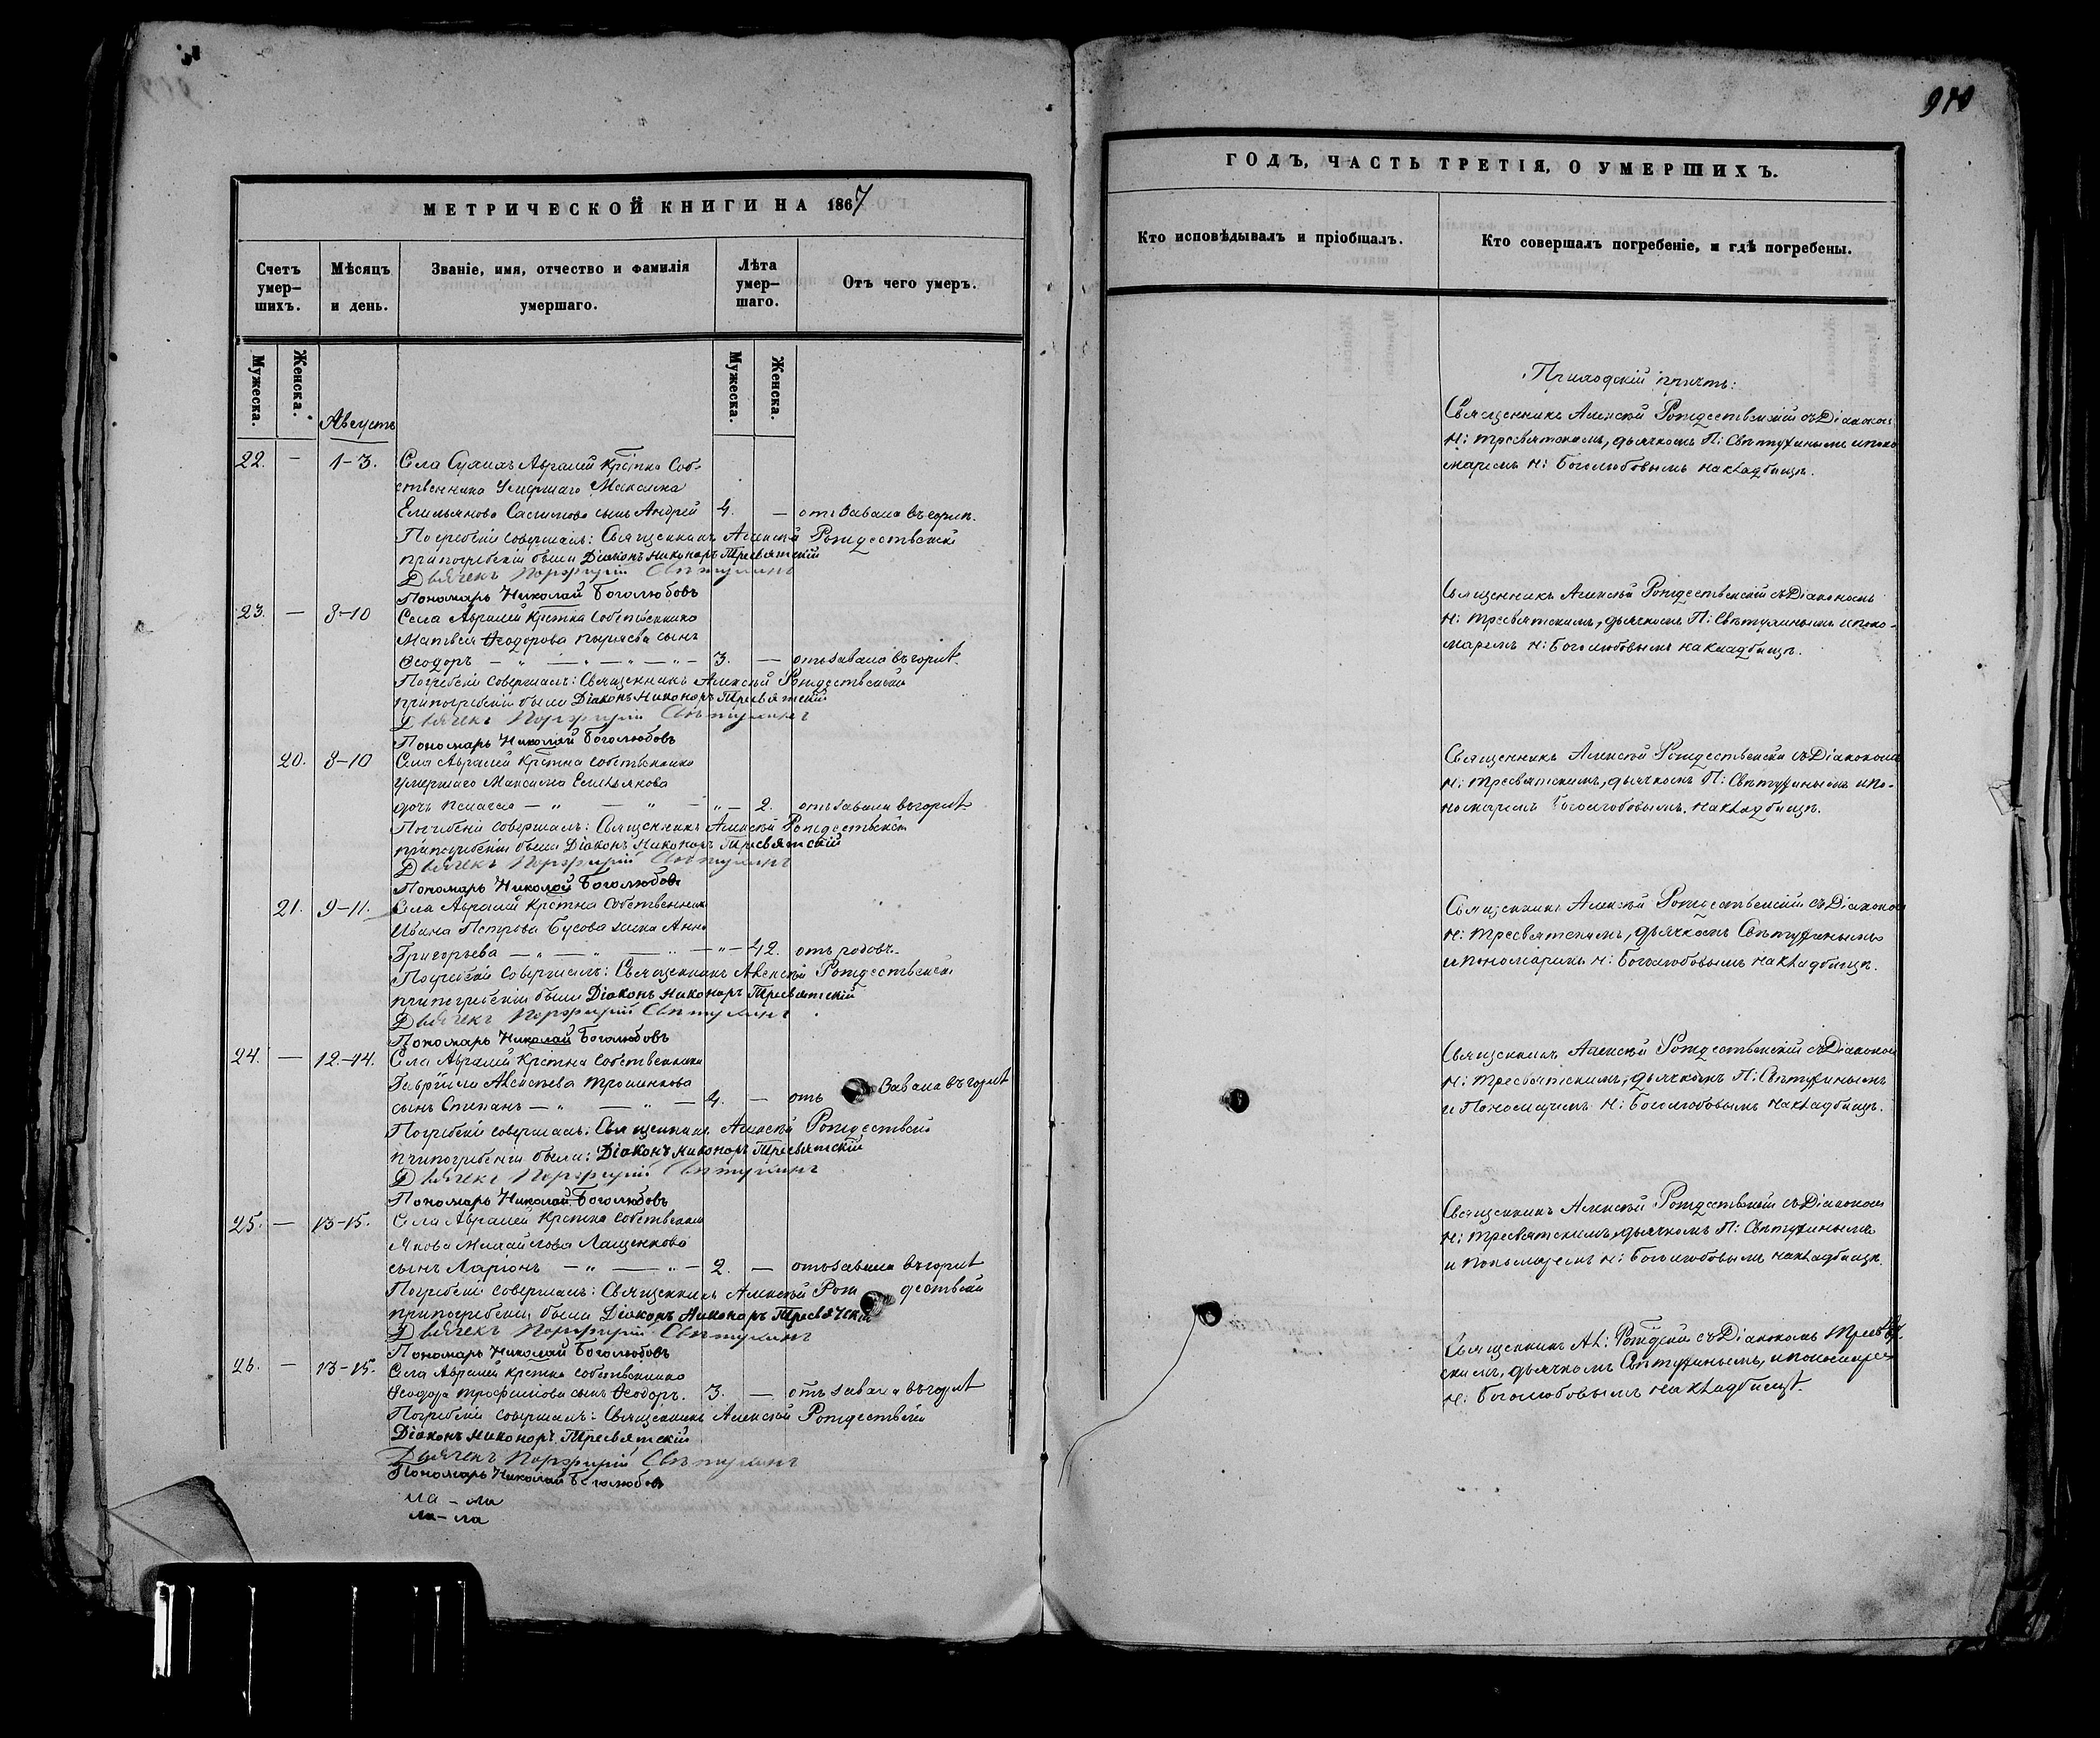 910
МЕТРИЧЕСКОЙ КНИГИ НА 1867
Счетъ умер-
шихъ.
Мѣсяцъ
и день.
Званіе, имя, отчество и фамилія
умершаго.
Лѣта
умер-
шаго.
Отъ чего умеръ.
Мужеска.
Женска.
Мужеска.
Женска.
Августъ
22. — 1-3. Села
Аврамей Крестна Соб-
ственника Умершаго Максима
Емельянова сынъ Андрей 4. — отъ завала въ горлѣ.
Погребеніе совершалъ: Священникъ Алексѣй Рождественскій
при погребеніи были Діаконъ Никоноръ Тресвятскій
Дьячекъ Порфирій Свѣтухинъ
Пономарь Николай Боголюбовъ
23. — 8-10 Села Аврамей Крестна Собственника
Матвея Ѳеодорова сынъ
Ѳеодоръ — " — " — " — 3. — отъ завала въ горлѣ.
Погребеніе совершалъ: Священникъ Алексѣй Рождественскій
при погребеніи были Діаконъ Никоноръ Тресвятскій
Дьячекъ Порфирій Свѣтухинъ
Пономарь Николай Боголюбовъ
20. 8-10 Села Аврамей Крестна собственника
умершаго Максима Емельянова
дочь — " — " — " — 2. отъ завала въ горлѣ
Погребеніе совершалъ: Священникъ Алексѣй Рождественскій
при погребеніи были Діаконъ Никоноръ Тресвятскій
Дьячекъ Порфирій Свѣтухинъ
Пономарь Николай Боголюбовъ
21. 9-11. Села Аврамей Крестна Собственника
Ивана Петрова Бусова жена Анна
Григорьева — " — " — " — 42. отъ родовъ.
Погребеніе совершалъ: Священникъ Алексѣй Рождественскій
при погребеніи были Діаконъ Никоноръ Тресвятскій
Дьячекъ Порфирій Свѣтухинъ
Пономарь Николай Боголюбовъ
24. — 12-14. Села Аврамей Крестна Собственника
Гаврiила Алексѣева
сынъ Степанъ — " — " — 4. — отъ завала въ горлѣ
Погребеніе совершалъ: Священникъ Алексѣй Рождественскій
при погребеніи были: Діаконъ Никоноръ Тресвятскій
Дьячекъ Порфирій Свѣтухинъ
Пономарь Николай Боголюбовъ
25. — 13-15. Села Аврамей Крестна собственника
Якова Михайлова Лащенкова
сынъ Ларіонъ — " — " — 2. — отъ завала въ горлѣ
Погребеніе совершалъ: Священникъ Алексѣй Рождественскій
при погребеніи были Діаконъ Никоноръ Тресвятскій
Дьячекъ Порфирій Свѣтухинъ
Пономарь Николай Боголюбовъ
26. — 13-15. Села Аврамей Крестна собственника
Ѳеодора Трофимова сынъ Ѳеодоръ. 3. — отъ завала въ горлѣ
Погребеніе совершалъ: Священникъ Алексѣй Рождественскій
Діаконъ Никоноръ Тресвятскій
Дьячекъ Порфирій Свѣтухинъ
Пономарь Николай Боголюбовъ
ла - ла
ла - ла
ГОДЪ, ЧАСТЬ ТРЕТІЯ, О УМЕРШИХЪ.
Кто исповѣдывалъ и пріобщалъ.
Кто совершалъ погребеніе, и гдѣ погребены.
Приходскій причтъ:
Священникъ Алексѣй Рождественскій съ Діакономъ
Н: Тресвятскимъ, дьячкомъ П: Свѣтухинымъ и поно-
маремъ Н: Боголюбовымъ на кладбищѣ.
Священникъ Алексѣй Рождественскій съ Діакономъ
Н: Тресвятскимъ, дьячкомъ П: Свѣтухинымъ и поно-
маремъ Н: Боголюбовымъ на кладбищѣ.
Священникъ Алексѣй Рождественскій съ Діакономъ
Н: Тресвятскимъ, дьячкомъ П: Свѣтухинымъ и по-
номаремъ Боголюбовымъ. на кладбищѣ.
Священникъ Алексѣй Рождественскій съ Діакономъ
Н: Тресвятскимъ, дьячкомъ Свѣтухинымъ
и пономаремъ Н: Боголюбовымъ на кладбищѣ.
Священникъ Алексѣй Рождественскій съ Діакономъ
Н: Тресвятскимъ, дьячкомъ П: Свѣтухинымъ
и Пономаремъ Н: Боголюбовымъ на кладбищѣ.
Священникъ Алексѣй Рождественскій съ Діакономъ
Н: Тресвятскимъ, дьячкомъ П: Свѣтухинымъ
и пономаремъ Н: Боголюбовымъ на кладбищѣ.
Священникъ Ал: Рождескій съ Діакономъ Тресвят-
скимъ, дьячкомъ Свѣтухинымъ, и пономаремъ
Н: Боголюбовымъ на кладбищѣ.